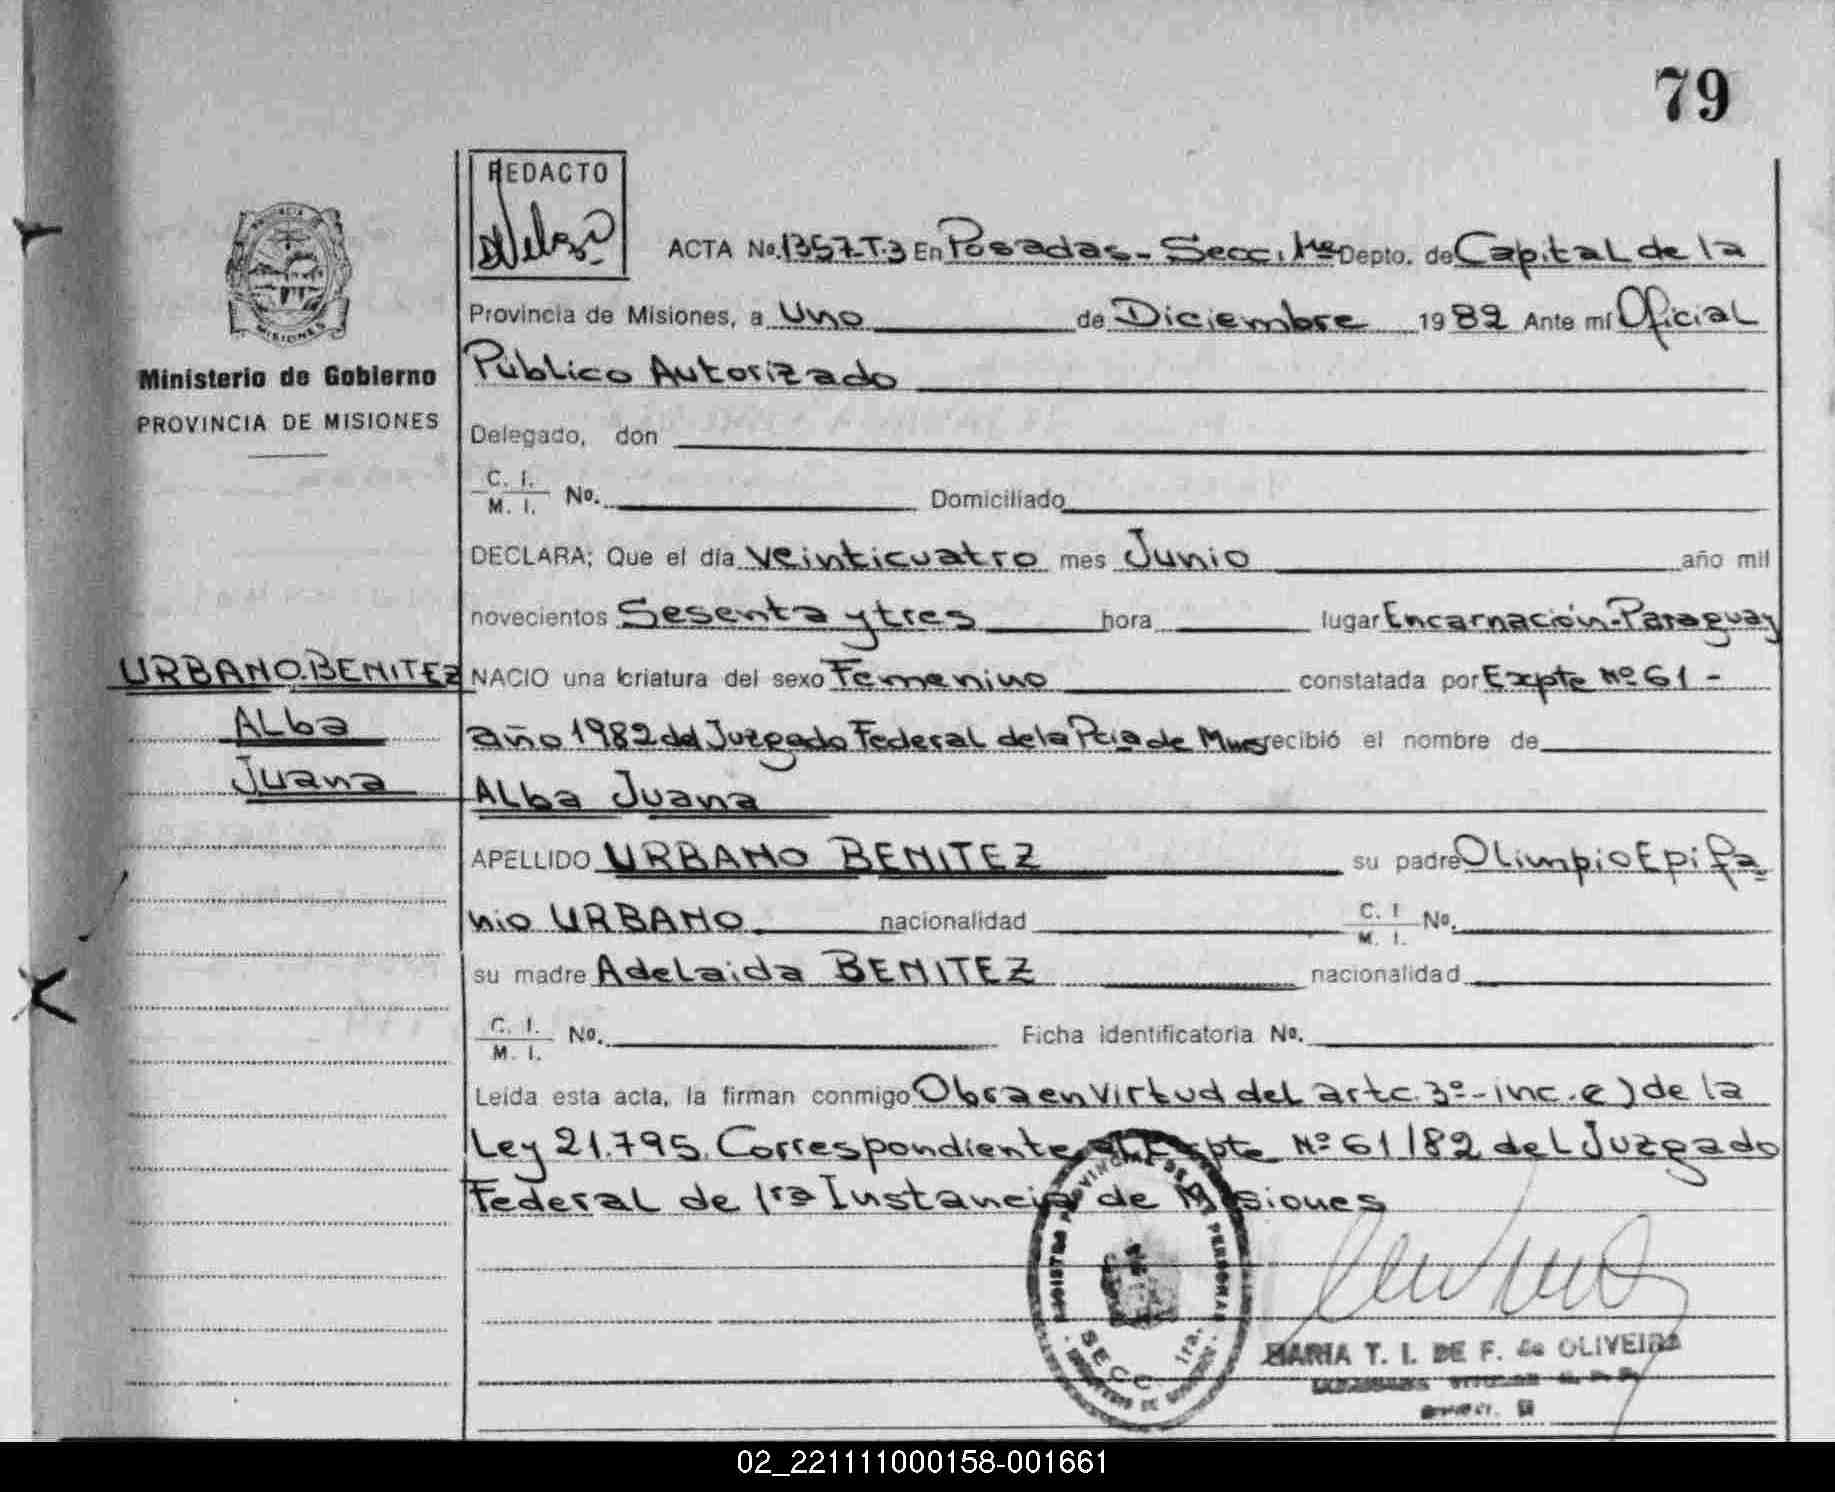 79
REDACTO
ACTA No. 1357-T.3 En Posadas - Secc. 1ra Depto. de Capital de la
Provincia de Misiones, a Uno de Diciembre 1982 Ante mí Oficial
Público Autorizado
Ministerio de Gobierno
PROVINCIA DE MISIONES
Delegado, don
C. I.
M. I. No. Domiciliado
DECLARA; Que el día veinticuatro mes Junio año mil
novecientos Sesenta y tres hora lugar Encarnación-Paraguay
URBANO BENITEZ
Alba
Juana
NACIO una criatura del sexo Femenino constatada por Expte Nº 61 -
año 1982 del Juzgado Federal de la Pcia de Mnes recibió el nombre de
Alba Juana
APELLIDO URBANO BENITEZ su padre Olimpio Epifa=
nio URBANO nacionalidad C. I. M. I. No.
su madre Adelaida BENITEZ nacionalidad
C. I.
M. I. No. Ficha identificatoria No.
Leída esta acta, la firman conmigo Obra en virtud del artc. 3º - inc. c) de la
Ley 21.795. Correspondiente al Expte Nº 61/82 del Juzgado
Federal de 1ra Instancia de Misiones
SECC. 1ra.
MARIA T. I. DE F. de OLIVEIRA
02_221111000158-001661